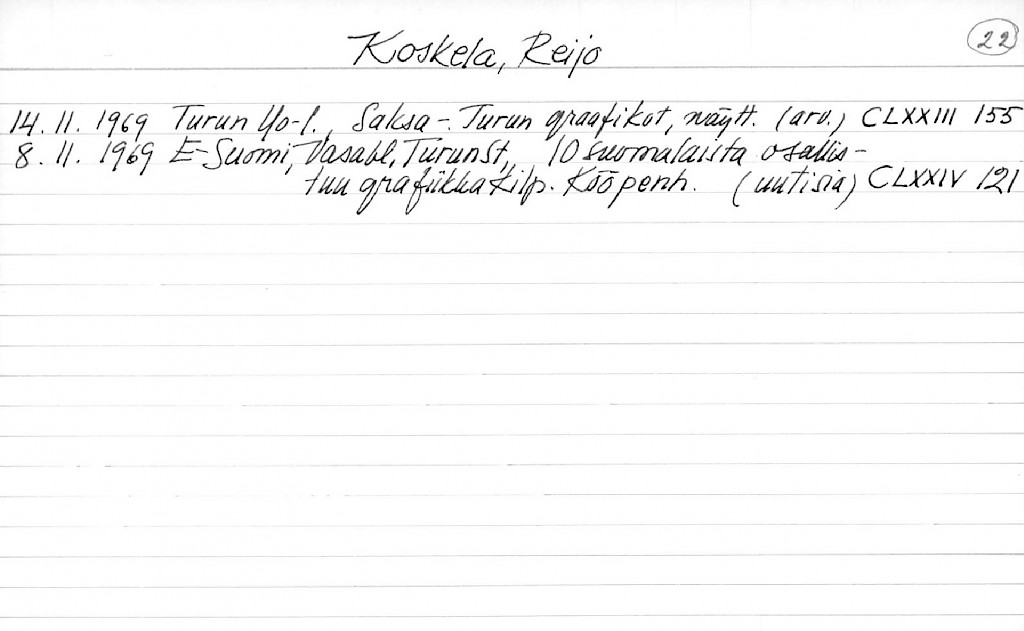 Koskela, Reijo 22
14.11.1969 Turun Yo-l., Saksa-. Turun graafikot, näytt. (arv.) CLXXIII 155
8.11.1969 E-Suomi, Vasabl, TurunSt, 10 suomalaista osallis-
tuu grafiikka kilp. Kööpenh. (uutisia) CLXXIV 121